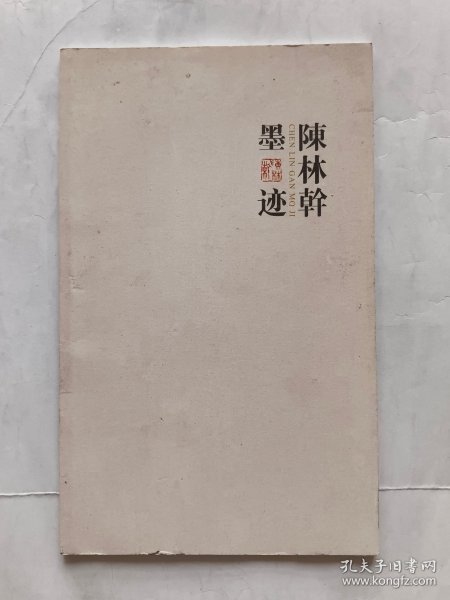 陳林幹
CHEN LIN GAN MO JI
墨
迹
孔夫子旧书网
www.kongfz.com